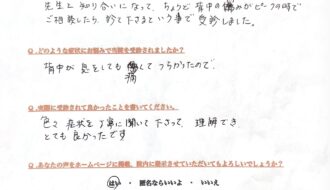 先生と知り合いになって、ちょうど背中の痛みがピークの時で
ご相談したら、診て下さるという事で受診しました。
Q.どのような症状にお悩みで当院を受診されましたか？
背中が息をしても痛してつらかったので
Q.実際に受診されて良かったことを書いてください。
色々症状を丁寧に聞いて下さって、理解でき
とても良かったです
Q.あなたの声をホームページに掲載、院内に掲示させていただいてもよろしいでしょうか？
はい ・ 匿名ならいいよ ・ いいえ